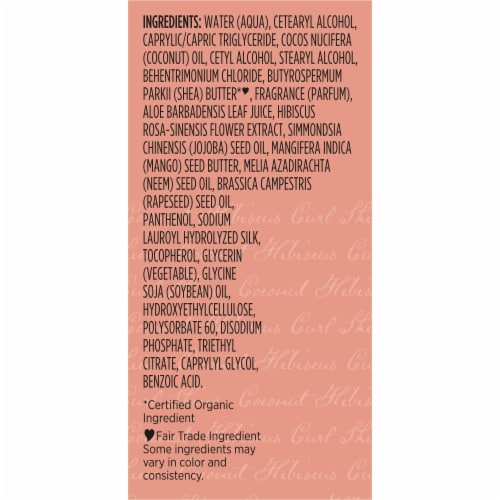 INGREDIENTS: WATER (AQUA), CETEARYL ALCOHOL,
CAPRYLIC/CAPRIC TRIGLYCERIDE, COCOS NUCIFERA
(COCONUT) OIL, CETYL ALCOHOL, STEARYL ALCOHOL,
BEHENTRIMONIUM CHLORIDE, BUTYROSPERMUM
PARKII (SHEA) BUTTER*♥, FRAGRANCE (PARFUM),
ALOE BARBADENSIS LEAF JUICE, HIBISCUS
ROSA-SINENSIS FLOWER EXTRACT, SIMMONDSIA
CHINENSIS (JOJOBA) SEED OIL, MANGIFERA INDICA
(MANGO) SEED BUTTER, MELIA AZADIRACHTA
(NEEM) SEED OIL, BRASSICA CAMPESTRIS
(RAPESEED) SEED OIL,
PANTHENOL, SODIUM
LAUROYL HYDROLYZED SILK,
TOCOPHEROL, GLYCERIN
(VEGETABLE), GLYCINE
SOJA (SOYBEAN) OIL,
HYDROXYETHYLCELLULOSE,
POLYSORBATE 60, DISODIUM
PHOSPHATE, TRIETHYL
CITRATE, CAPRYLYL GLYCOL,
BENZOIC ACID.
*Certified Organic
Ingredient
♥Fair Trade Ingredient
Some ingredients may
vary in color and
consistency.